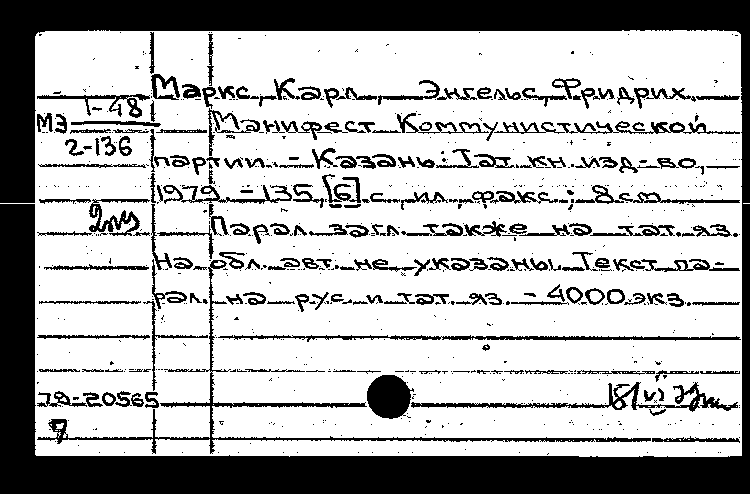 Маркс, Карл, Энгельс, Фридрих.
МЭ 1-48
2-136
Манифест Коммунистической
партии. - Казань: Тат. кн. изд-во,
1979. - 135, [6] с., ил., факс.; 8 см
Парал. загл. также на тат. яз.
На обл. авт. не указаны. Текст па-
рал. на рус. и тат. яз. - 4000 экз.
79-20565
7